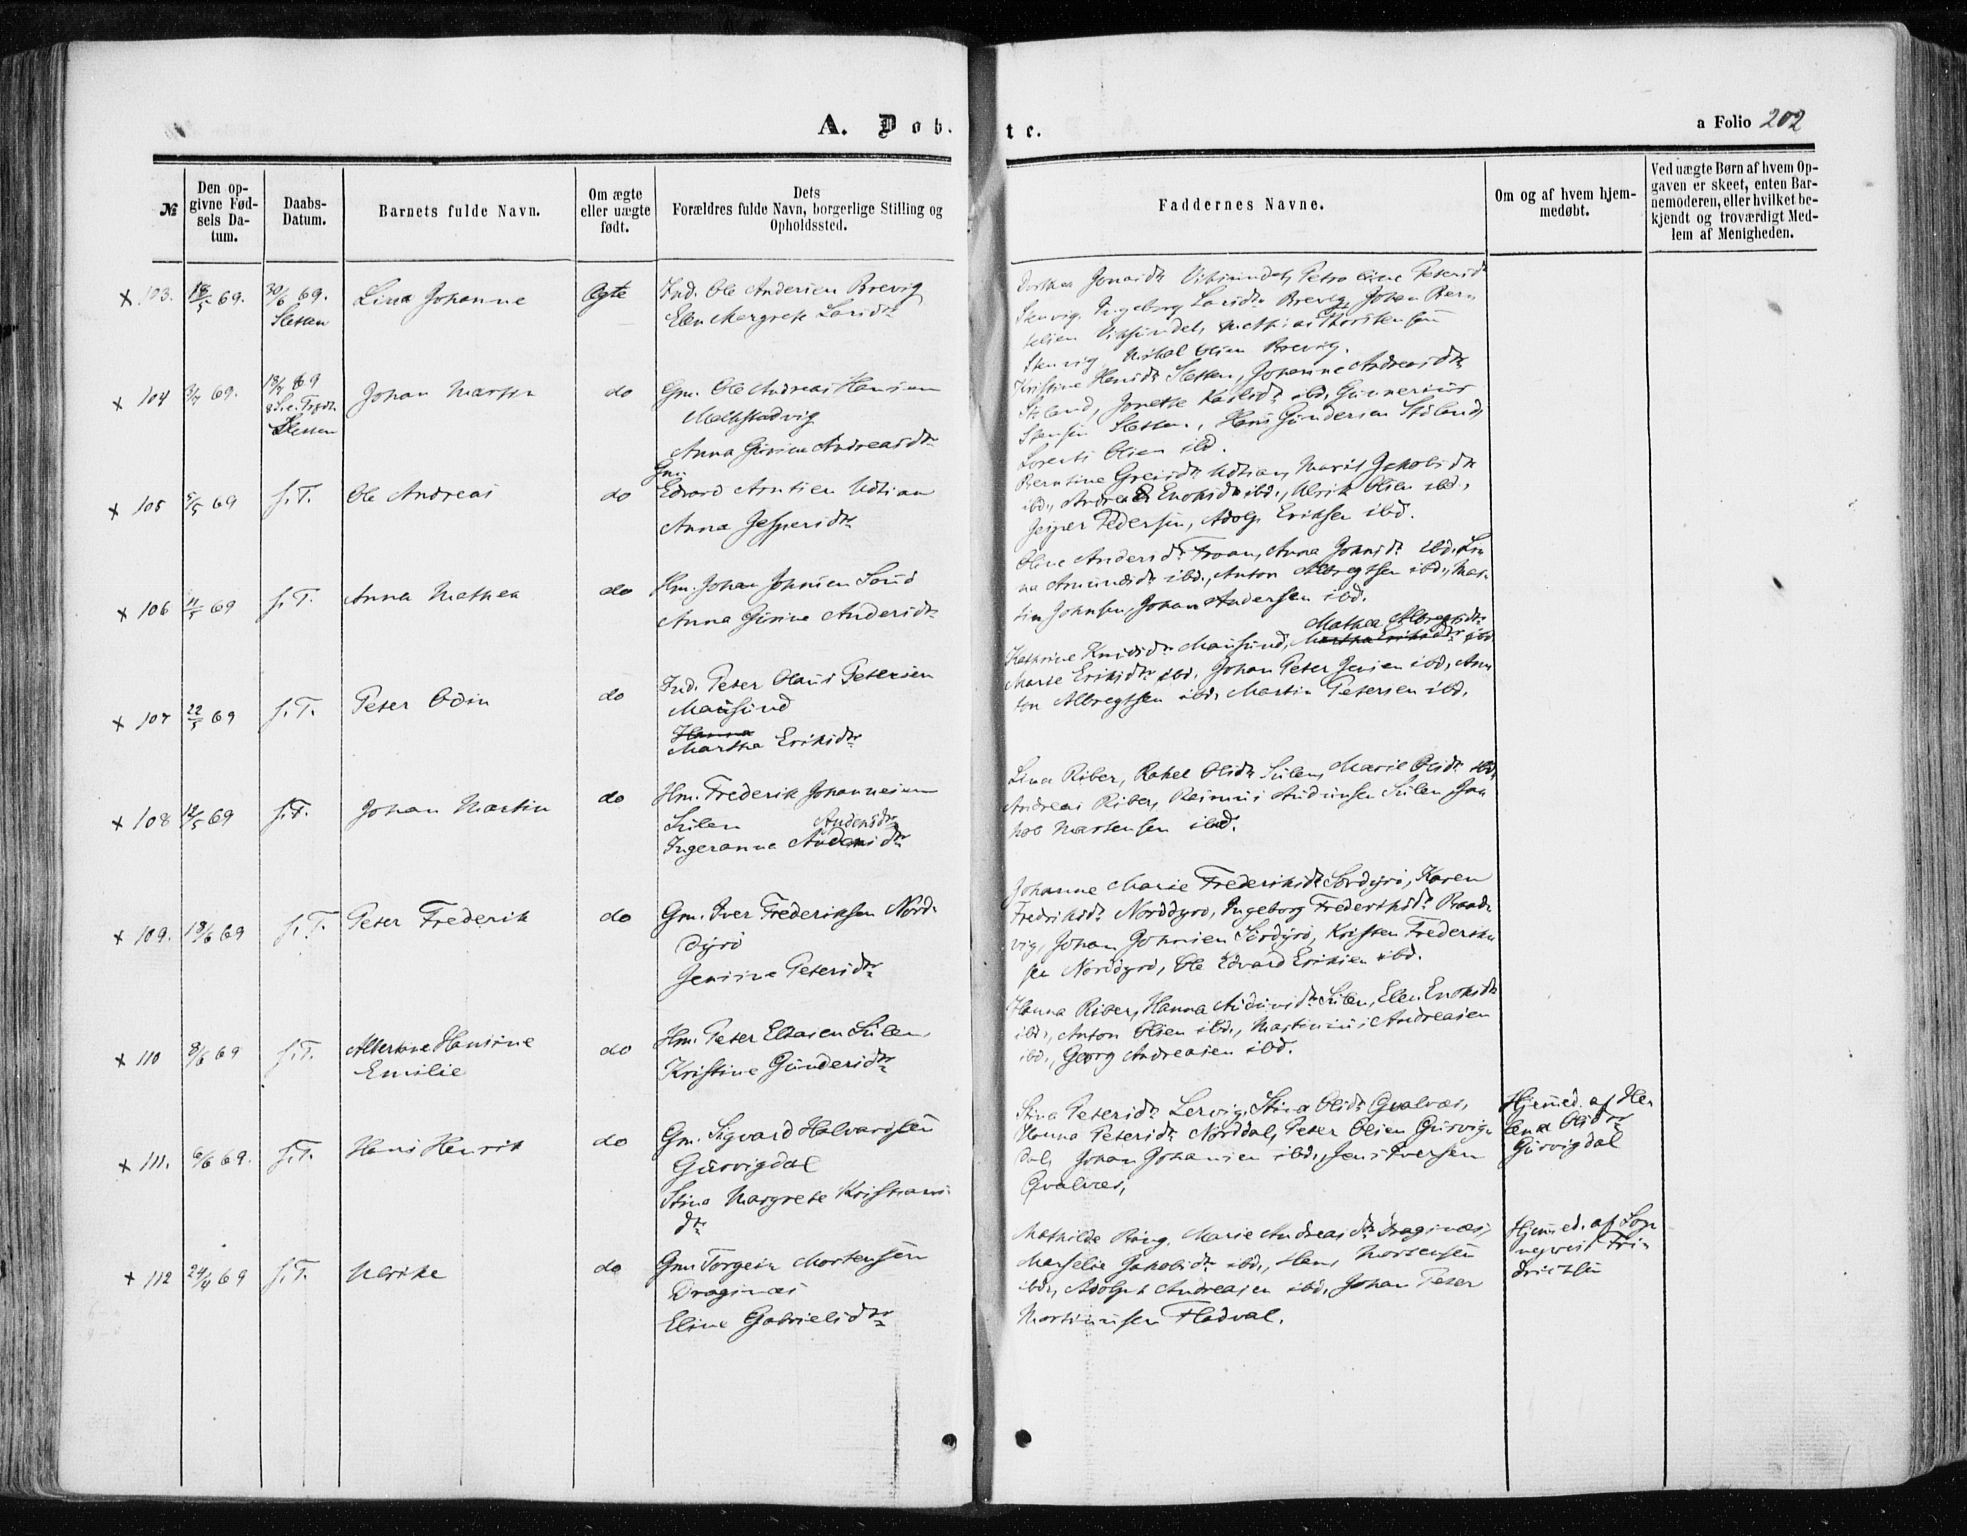 A. Døb.
te.
a Folio 202
№
Den op-
givne Fød-
sels Da-
tum.
Daabs-
Datum.
Barnets fulde Navn.
Om ægte
eller uægte
født.
Dets
Forældres fulde Navn, borgerlige Stilling og
Opholdssted.
Faddernes Navne.
Om og af hvem hjem-
medøbt.
Ved uægte Børn af hvem Op-
gaven er skeet, enten Bar-
nemoderen, eller hvilket be-
kjendt og troværdigt Med-
lem af Menigheden.
x 103.
18/5 69.
20/6 69.
Sletten
Lina Johanne
Ægte
Ind. Ole Andersen Brevig
Elen Margrete Larsdtr
Dorthea Jonasdtr Petroline Petersdtr
Ingeborg Larsdtr Brevig, Johan Bern
Mathias Thorstensen
Mikal Olsen Brevig.
x 104
69.
69
Sletten
Johan Martin
do
Gm. Ole Andreas Hansen
Anna Sirine Andreasdtr
Kristine Hansdtr Sletten, Johanne Andreasdtr
Stoland, Jonette Karlsdtr ibd, Gunnerius
Stensen Sletten, Hans Gundersen Stoland,
Lorents Olsen ibd.
x 105
5/5 69
s.T.
Ole Andreas
do
Gm.
Edvard Arntsen Udtian
Anna Jespersdtr
Berntine Udtian, Marit Jakobsdtr
ibd, Andrea Enoksdtr ibd., Ulrik Olsen ibd,
Jesper Pedersen, Adolp Eriksen ibd.
x 106
11/5 69
s.T.
Anna Mathea
do
Hm. Johan Johnsen
Anna Sirine Andersdtr
Oline Andersdtr Froan, Anna Johnsdtr ibd. Li
na Amundsdtr ibd., Anton Albregtsen ibd., Mar
tin Johnsen, Johan Andersen ibd.
x 107
22/5 69
s.T.
Peter Odin
do
Ind. Peter Olaus Petersen
Mausund
Hanna
Martha Eriksdtr
Mathea Albregtsdtr
Kathrine Knudsdtr Mausund, Martha Eriksdtr ibd
Marie Eriksdtr ibd. Johan Peter Jensen ibd, An
ton Albregtsen ibd, Martin Petersen ibd.
x 108
12/5 69
s.T.
Johan Martin
do
Hm. Frederik Johannesen
Sulen
Ingeranna
Lina Riber, Rakel Olsdtr Sulen, Marie Olsdtr ibd,
Andreas Riber, Rasmus Audunsen Sulen, Ja
kob Martensen ibd.
x 109.
18/6 69
s.T.
Peter Frederik
do
Gm. Iver Frederiksen Nord
dyrø
Jensine Petersdtr
Johanne Marie Frederiksdtr Sordyrø, Karen
Fredriksdtr Norddyrø, Ingeborg Frederiksdtr
vig, Johan Johnsen Sordyrø, Kristen Frederik
sen Norddyrø, Ole Edvard Eriksen ibd.
x 110
8/6 69
s.T.
Albertine Hansine
Emilie
do
Hm. Peter Eliasen Sulen,
Kristine Gundersdtr
Hanna Riber, Hanna Audunsdtr Sulen, Elen Enoksdtr
ibd, Anton Olsen ibd., Martinus Andreasen
ibd., Georg Andreasen ibd.
x 111.
6/6 69.
s.T.
Hans Henrik
do
Gm. Sigvard Halvorsen
Gurvigdal
Stina Margrete Kristians
dtr
Stina Petersdtr Lervig, Stina Olsdtr Qvalvær,
Hanna Petersdtr Norddal, Peter Olsen Gurvig
dal, Johan Johansen ibd., Jens Iversen
Qvalvær,
Hjemmed. af He
lena Olsdtr
Gurvigdal
x 112
24/4 69
s.T.
Ulrike
do
Gm. Torgein Mortensen
Dragsnæs
Eline Gabrielsdtr
Mathilde Ring, Marie Andreasdtr Dragsnæs,
Marselie Jakobsdtr ibd., Hans Mortensen
ibd, Adolph Andreasen ibd, Johan Peter
Martinusen Fladval.
Hjemmed. af Sog
nepræst Fri
drichsen